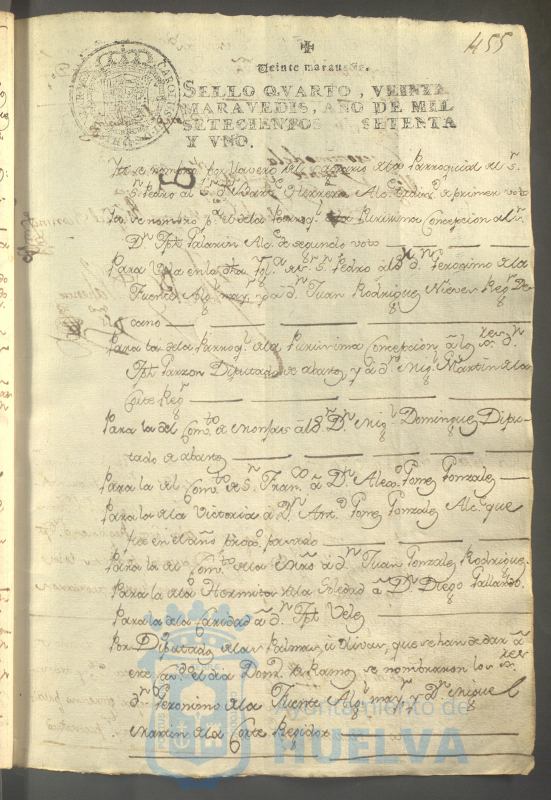 455
Veinte marauedis.
SELLO QVARTO, VEINTE
MARAVEDIS, AÑO DE MIL
SETECIENTOS SETENTA
Y VNO.
se nombra por llavero del Sagrario de la Parroquial del Sr.
Sn. Pedro al Sr. Dn. Herrera Alce. de primer voto
Yt. se nombro pa. el de la Parroql. de la Purissima Concepcion al Sr.
Dn. Jph. Alce. de segundo voto
Para la de en la dha Sr. Sn. Pedro al Sr. Dn. Geronimo de la
Fuente Algl. mayr. y a Dn. Juan Rodriguez Nieves Regr. De-
cano
Para la de la Parroql. de la Purissima Concepcion à los sres. Dn.
Jph. Garzon Diputado de abastos, y à Dn. Migl. Martin de la
Corte Regr.
Para la del Convto. de Monjas àl Sr. Dn. Migl. Dominguez Dipu-
tado de abastos
Para la del Convto. de Sn. Franco. à Dn. Alexo. Ponze Gonzalez
Para la de la Victoria à Dn. Anto. Ponze Gonzalez Alce. que
fue en el año proxo. passado
Para la del Convto. de la Mrd. à Dn. Juan Gonzalez Rodriguez
Para la de la Hermita de la Soledad à Dn. Diego Gallardo.
Para la de la Caridad à Dn. Jph. Velez
Por Diputados de las Palmas, ù Olivas, que se han de dar à
este Cavdo. el dia Domo. de Ramos se nombraron los sres.
Dn. Geronimo de la Fuente Algl. mayr. y Dn. Miguel
Martin de la Corte Regidor
Ayuntamiento de
HUELVA